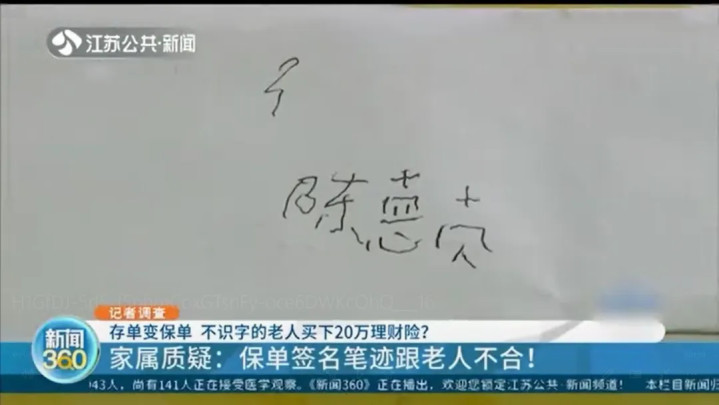 江苏公共·新闻
陈
记者调查
存单变保单 不识字的老人买下20万理财险？
新闻360
家属质疑：保单签名笔迹跟老人不合！
943人，尚有141人正在接受医学观察。《新闻360》正在播出，欢迎您锁定江苏公共·新闻频道！ 本栏目新闻归